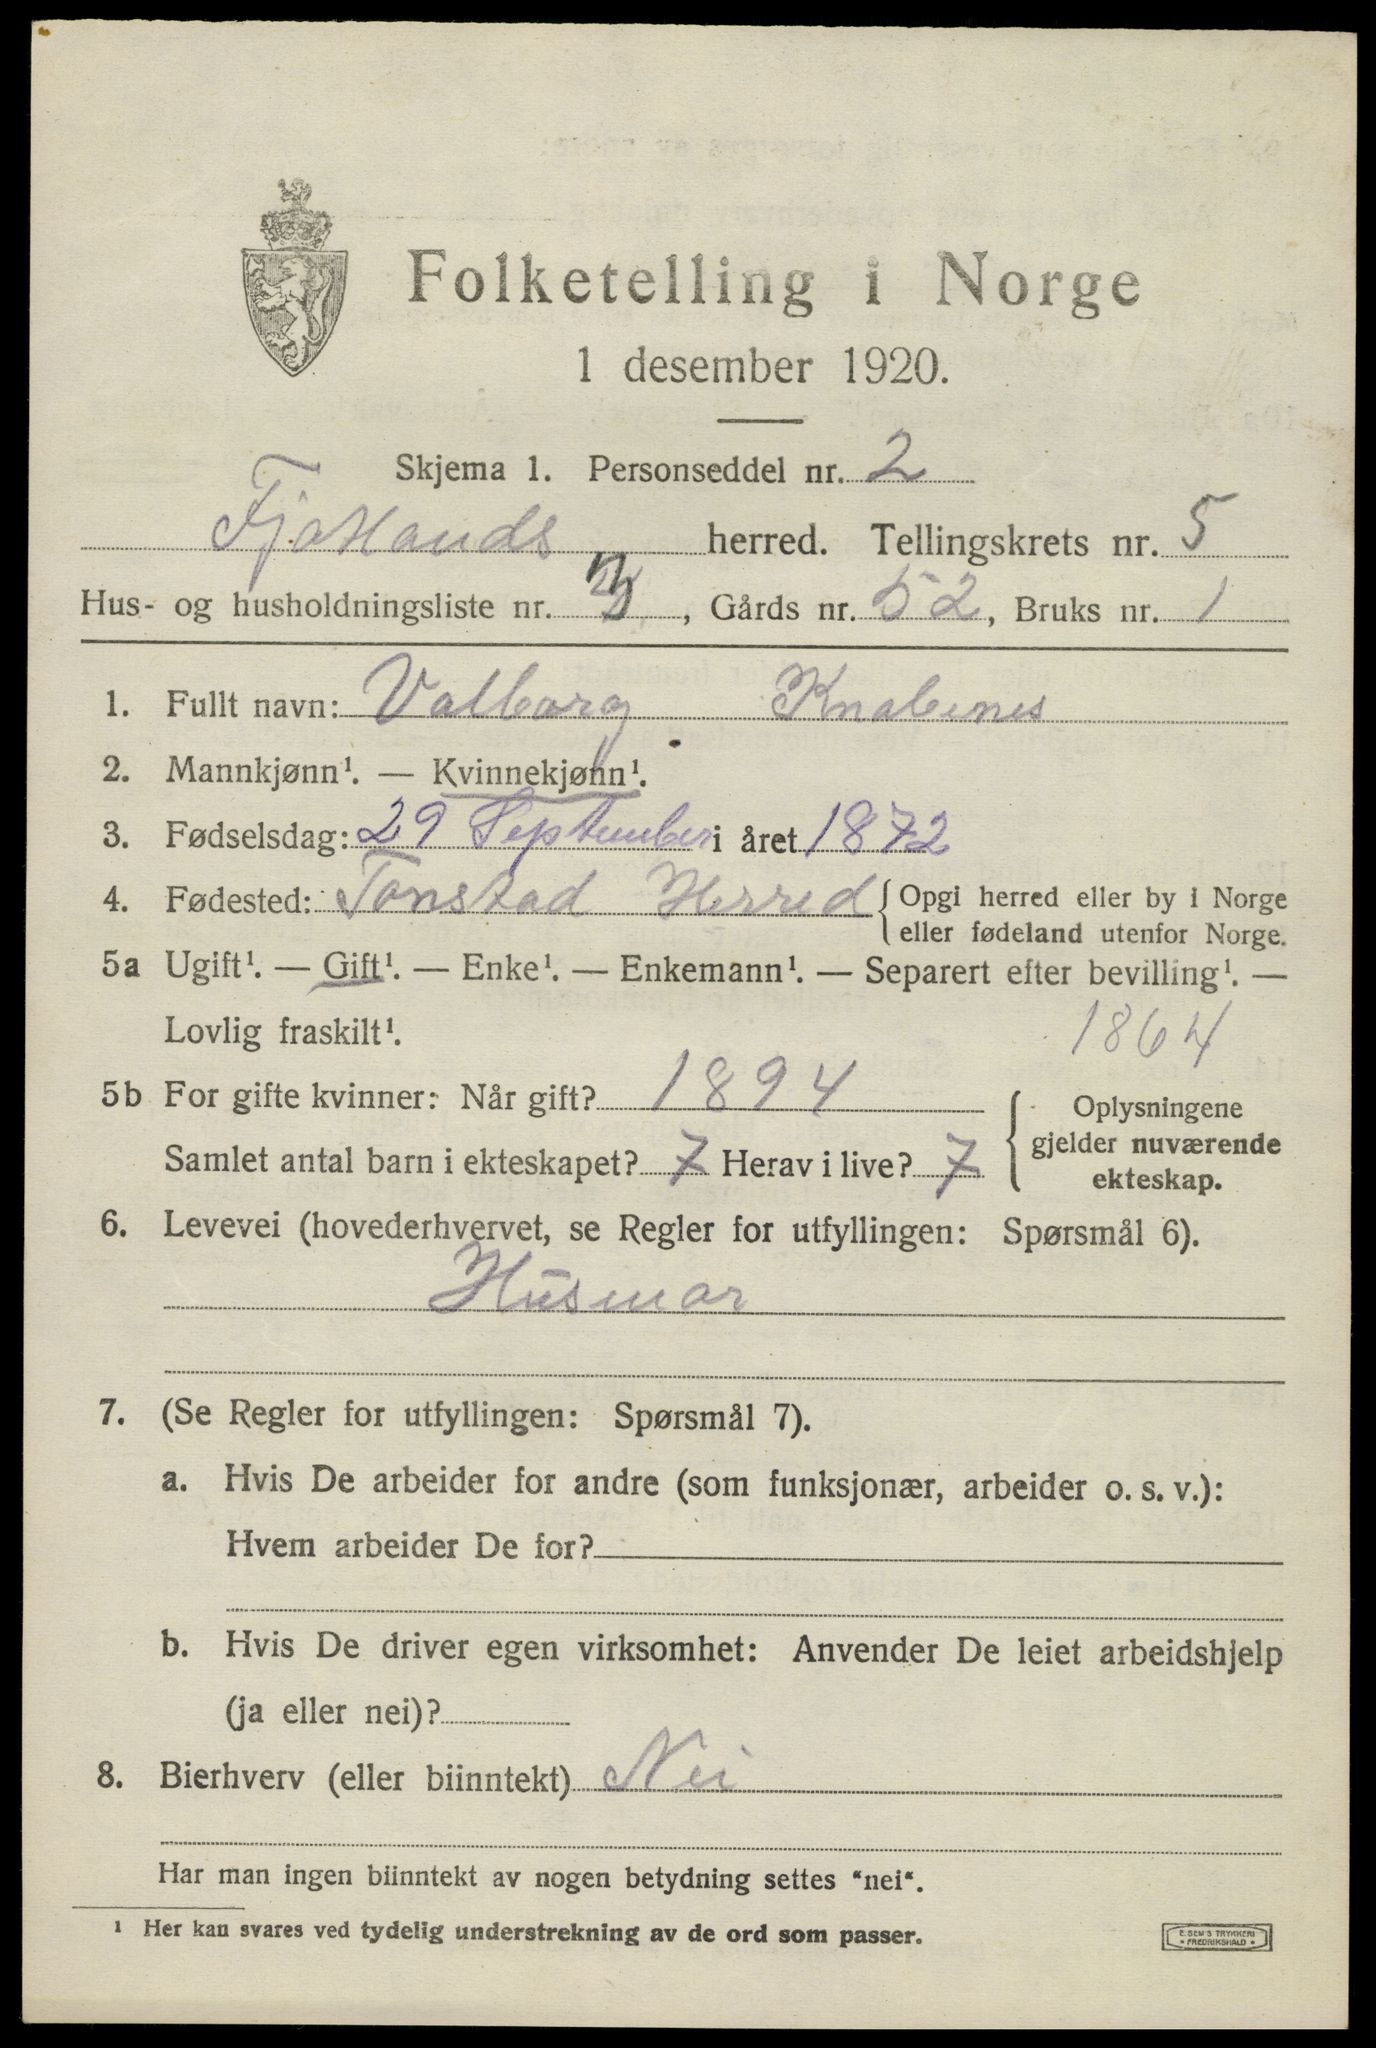 Folketelling i Norge
1 desember 1920.
Skjema 1. Personseddel nr. 2
Fjotlands herred. Tellingskrets nr. 5
Hus- og husholdningsliste nr. 3, Gårds nr. 52, Bruks nr. 1
1. Fullt navn: Valborg Knabenes
2. Mannkjønn¹. — Kvinnekjønn¹.
3. Fødselsdag: 29 September i året 1872
4. Fødested: Tonstad Herred {Opgi herred eller by i Norge
eller fødeland utenfor Norge.
5a Ugift¹. — Gift¹. — Enke¹. — Enkemann¹. — Separert efter bevilling¹. —
Lovlig fraskilt¹. 1864
5b For gifte kvinner: Når gift? 1894
Samlet antal barn i ekteskapet? 7 Herav i live? 7
Oplysningene
gjelder nuværende
ekteskap.
6. Levevei (hovederhvervet, se Regler for utfyllingen: Spørsmål 6).
Husmor
7. (Se Regler for utfyllingen: Spørsmål 7).
a. Hvis De arbeider for andre (som funksjonær, arbeider o. s. v.):
Hvem arbeider De for?
b. Hvis De driver egen virksomhet: Anvender De leiet arbeidshjelp
(ja eller nei)?
8. Bierhverv (eller biinntekt) Nei
Har man ingen biinntekt av nogen betydning settes "nei".
¹ Her kan svares ved tydelig understrekning av de ord som passer.
E. SEM'S TRYKKERI
• FREDRIKSHALD •